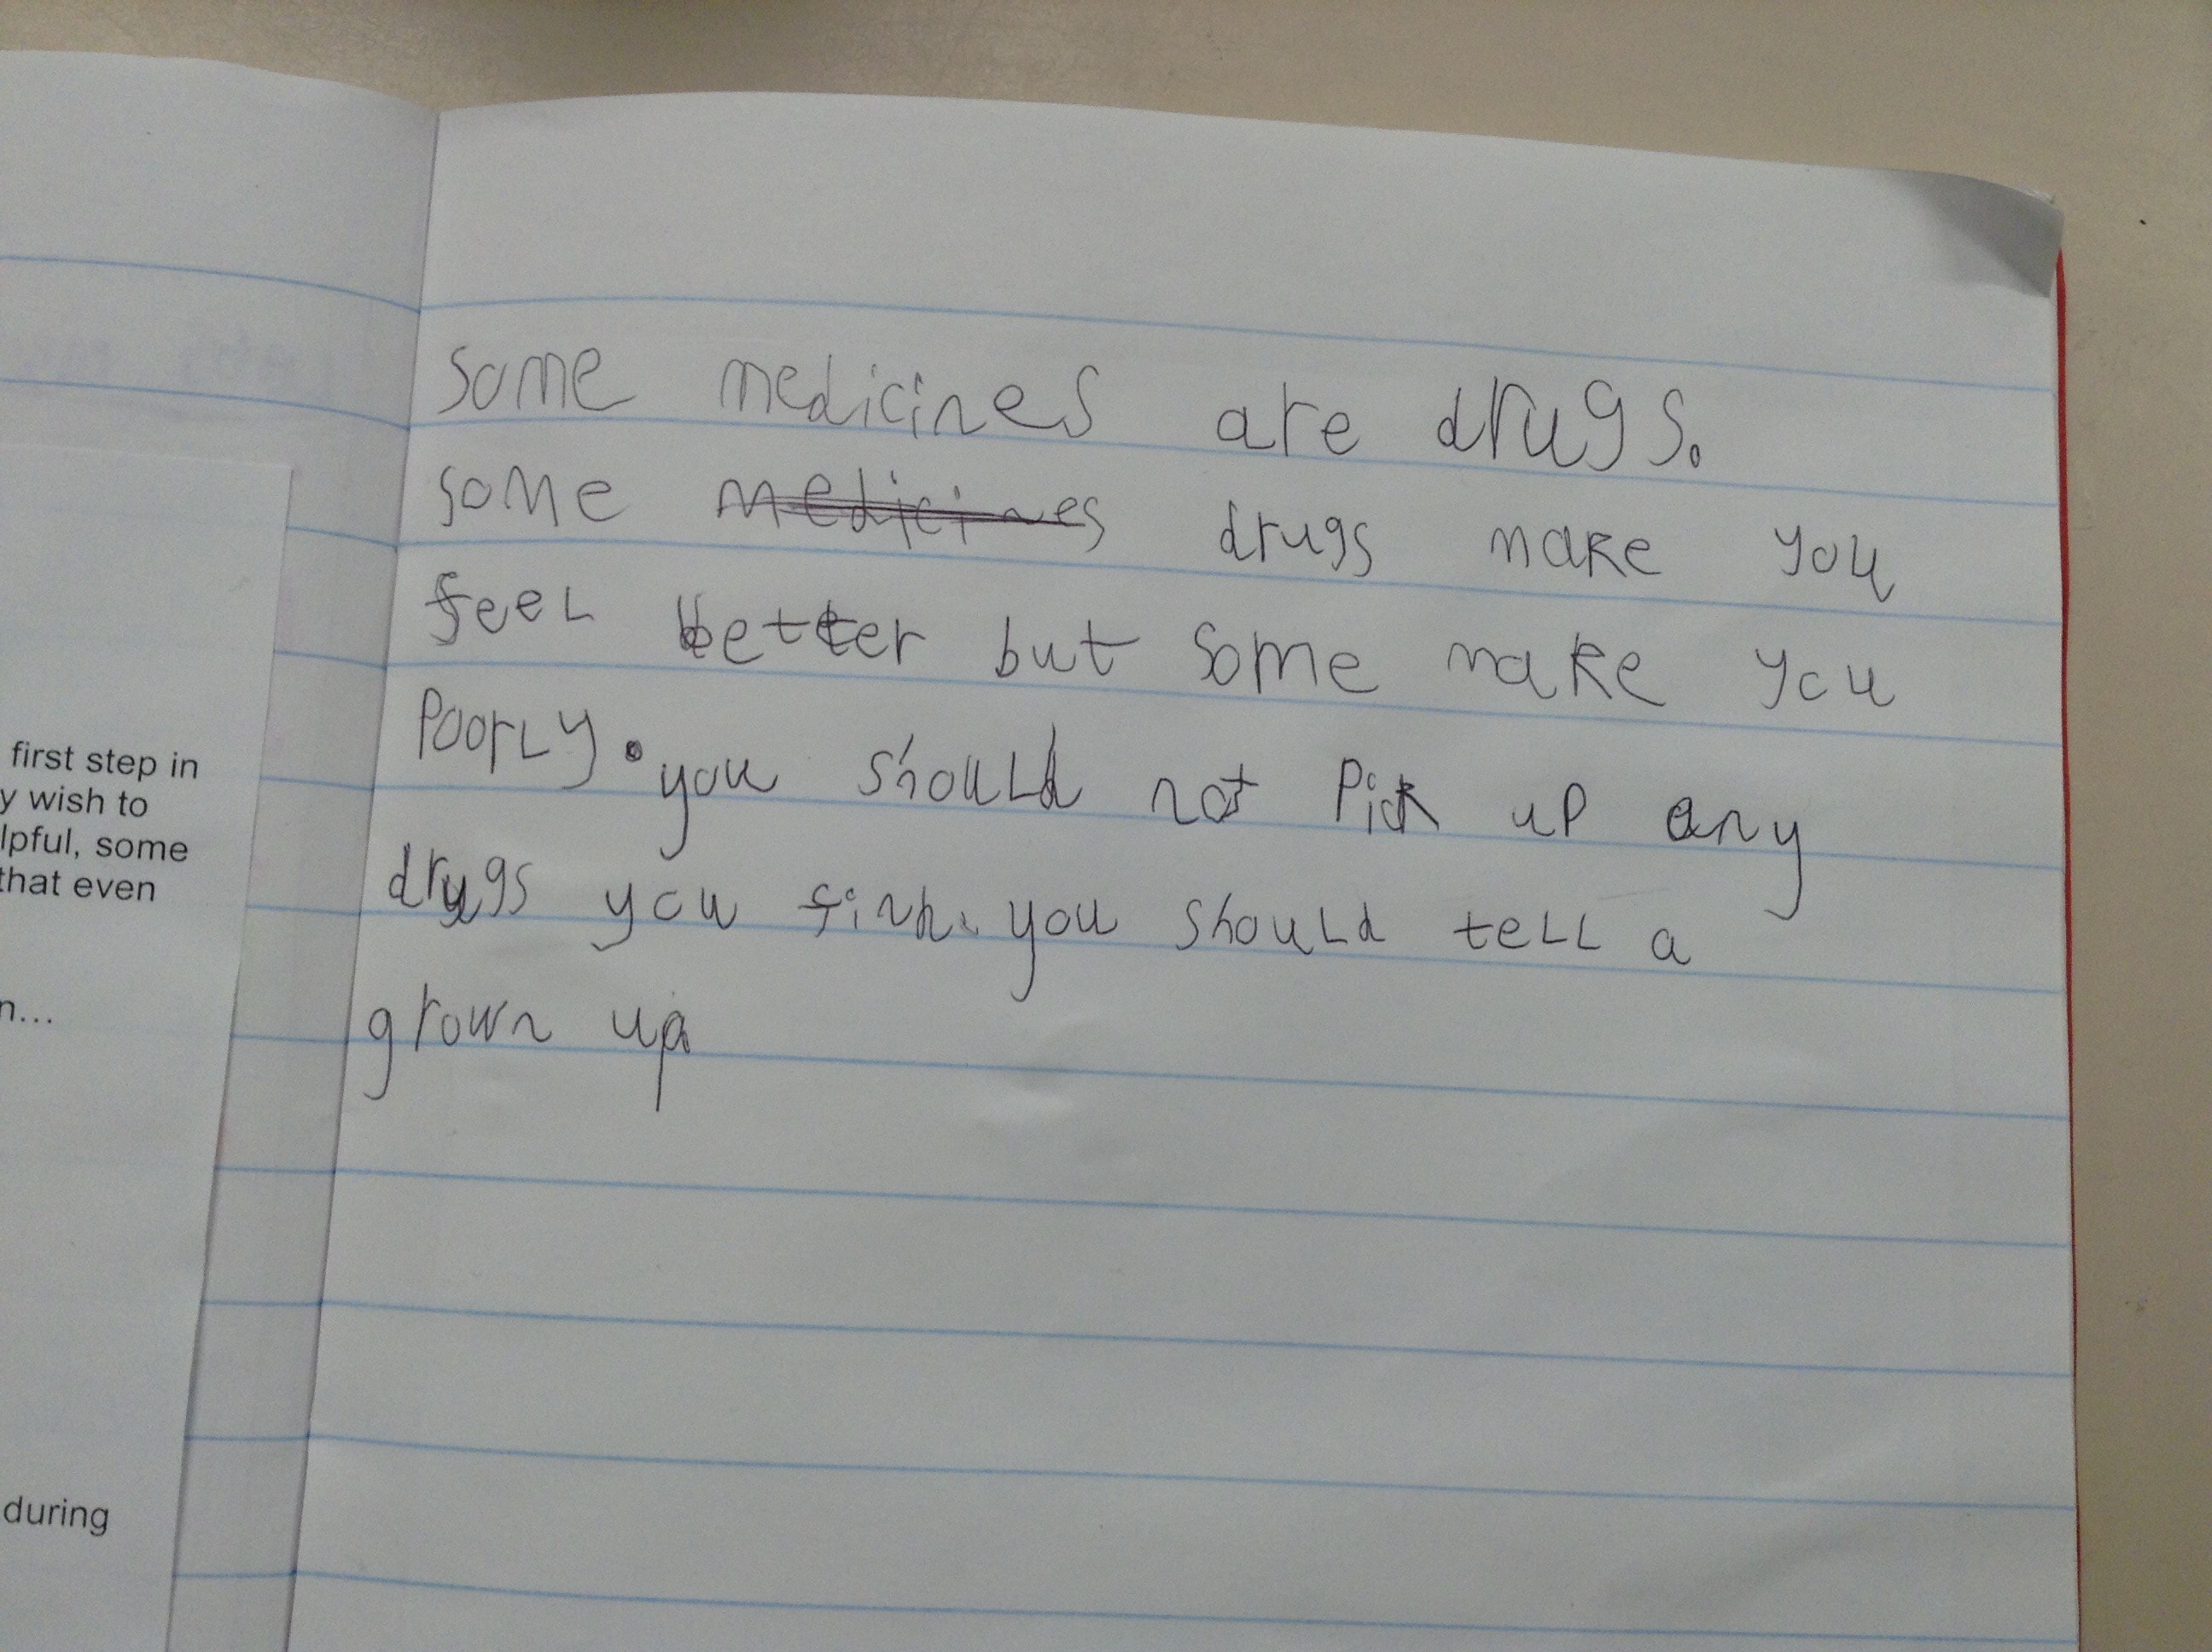 first step in
y wish to
lpful, some
that even
n...
during
some medicines are drugs.
some medicines drugs make you
feel better but some make you
poorly. you should not pick up any
drugs you finh. you should tell a
grown up